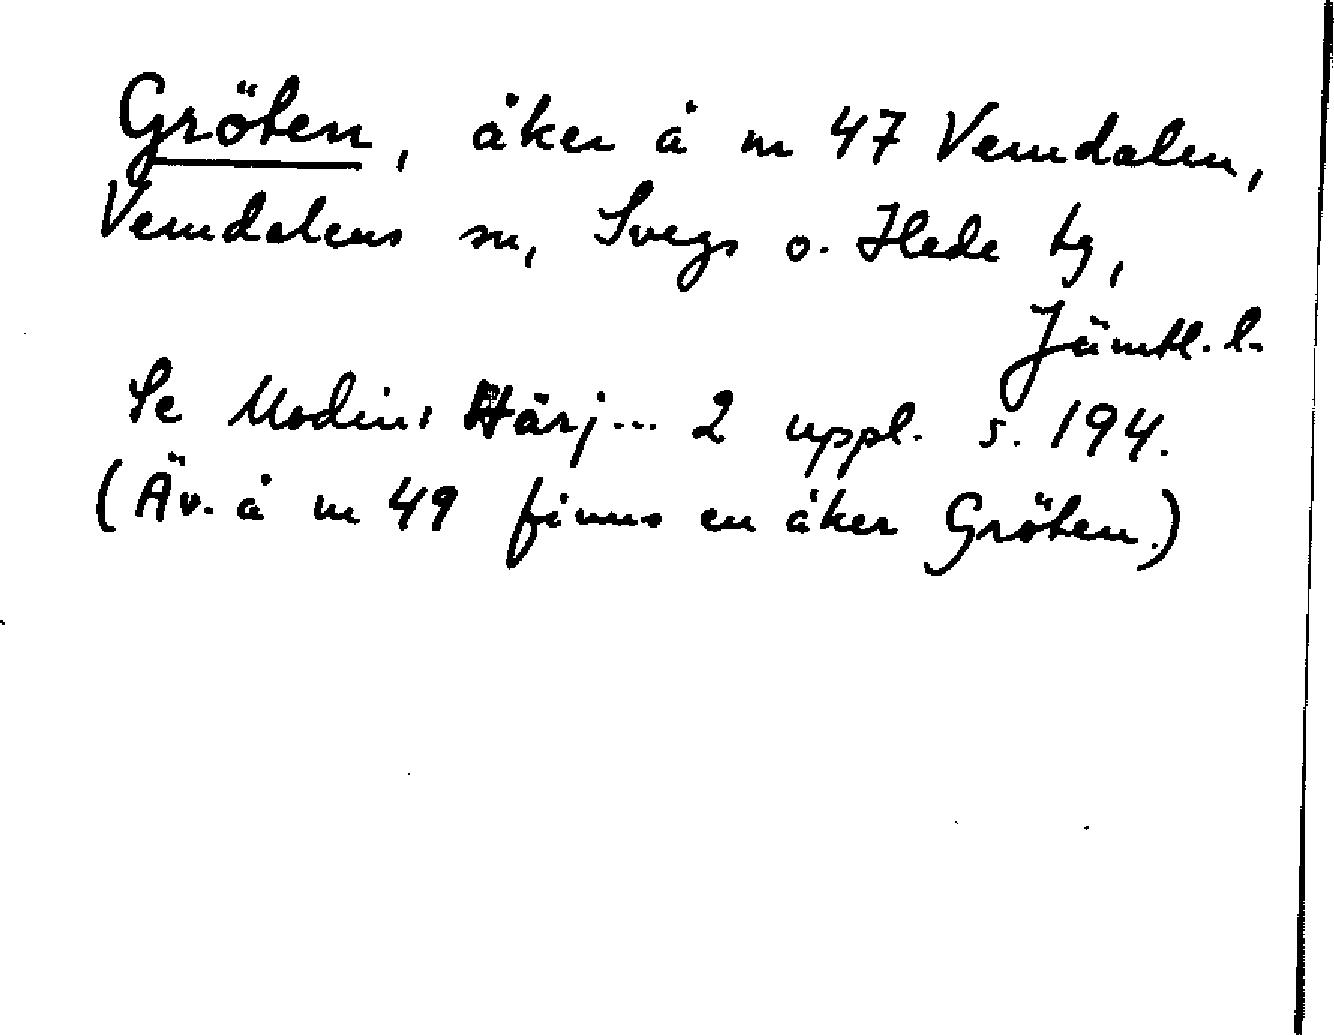 Gröten, åker å nr 47 Vemdalen,
Vemdalens sn, Svegs o. Hede tg,
Jämtl. l.
Se Modin: Härj... 2 uppl. s. 194.
(Äv. å nr 49 finns en åker Gröten.)